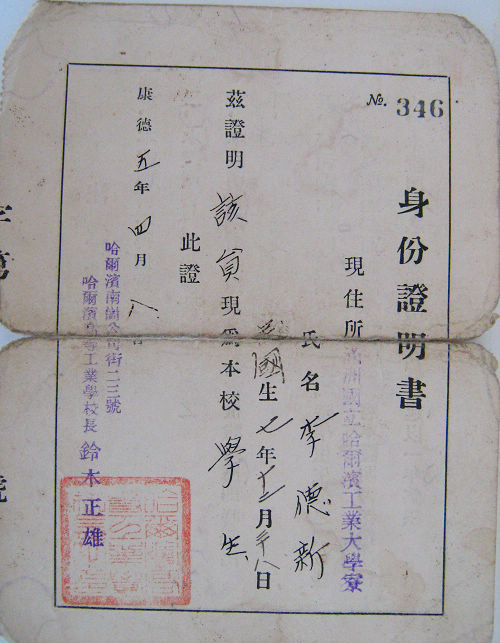 No. 346
身份證明書
現住所 滿洲國立哈爾濱工業大學寮
氏名 李德新
民國生七年十二月廿八日
茲證明該員現為本校學生
此證
康德五年四月八日
哈爾濱南崗公司街二三號
哈爾濱高等工業學校長 鈴木正雄